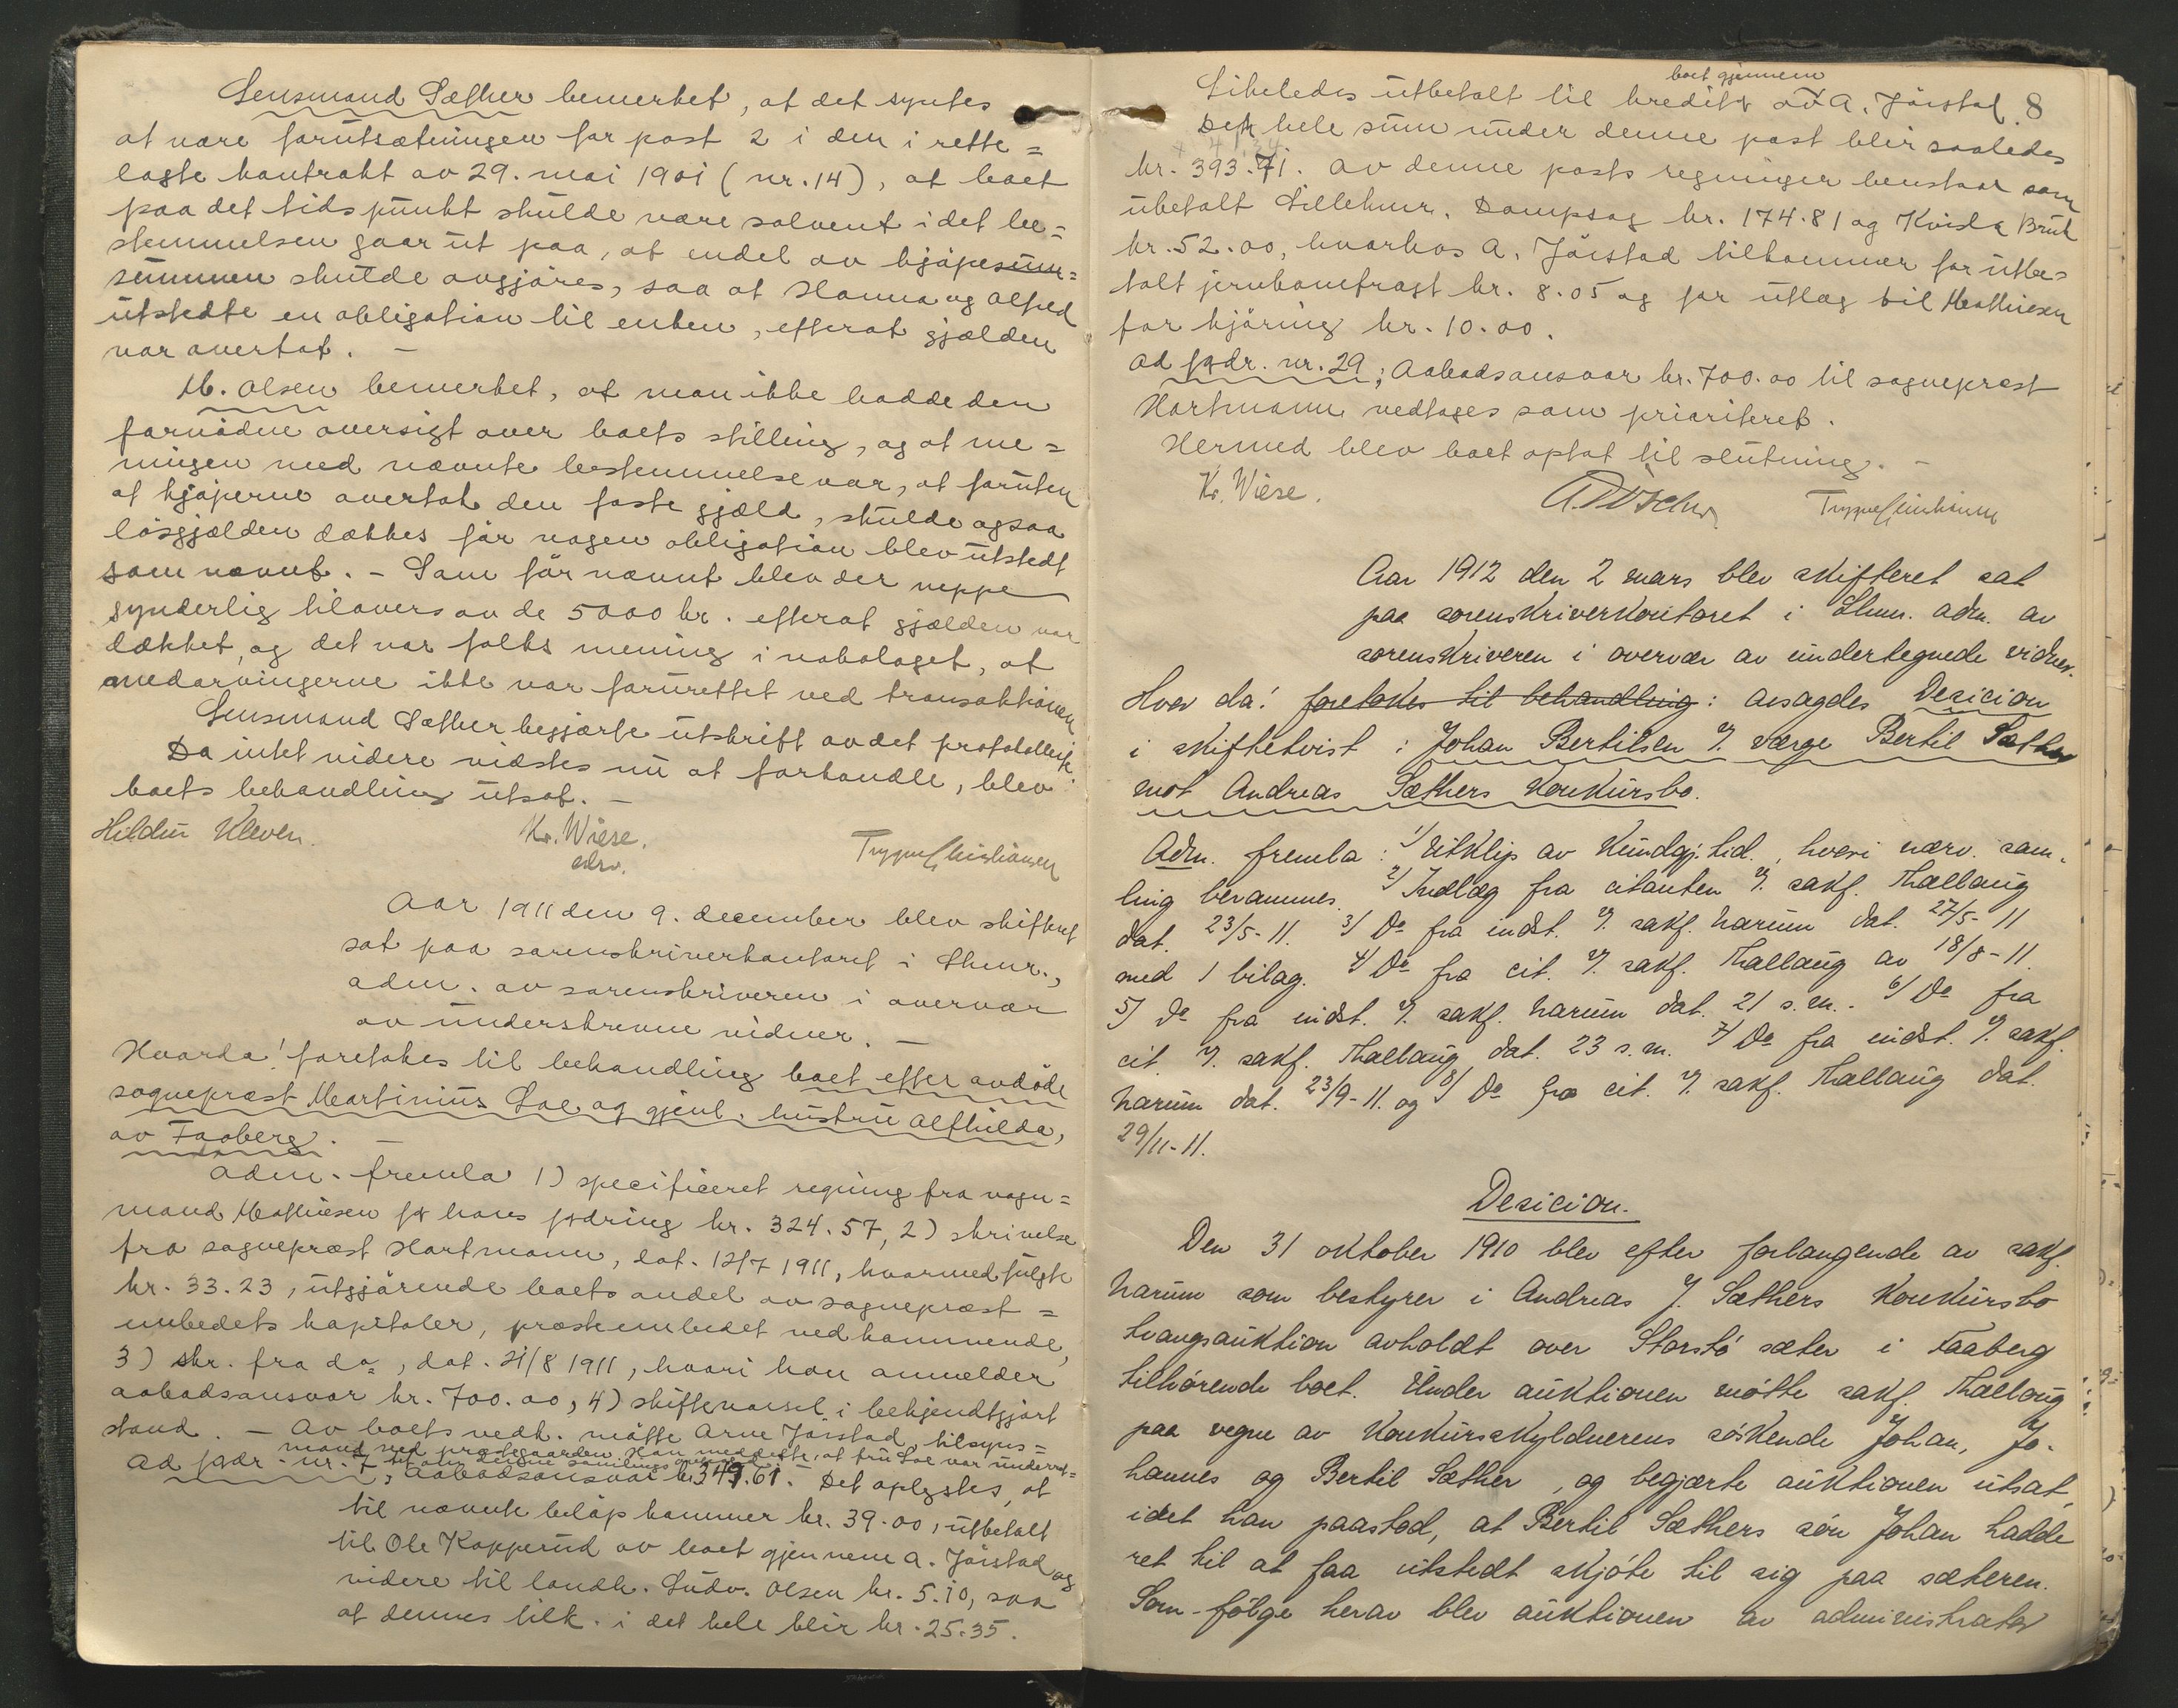 Lensmand Sæther bemerket, at det syntes
at være forutsætningen for post 2 i den i rette=
lagte kontrakt av 29. mai 1901 (nr. 14), at boet
paa det tidspunkt skulde være solvent i det be=
stemmelsen gaar ut paa, at endel av kjøpesum=
summen skulde avgjøres, saa at Hanna og Alfred
utstedte en obligation til enken, efterat gjælden
var overtat. —
M. Olsen bemerket, at man ikke hadde den
fornødne oversigt over boets stilling, og at me=
ningen med nævnte bestemmelse var, at foruten
at kjøperne overtok den faste gjæld, skulde ogsaa
løsgjælden dækkes før nogen obligation blev utstedt
som nævnt. – Som før nævnt blev der neppe
synderlig tilovers av de 5000 kr. efterat gjælden var
dækket, og det var folks mening i nabolaget, at
medarvingerne ikke var forurettet ved transaktionen
Lensmand Sæther begjærte utskrift av det protokollerte.
Da intet videre vidstes nu at forhandle, blev
boets behandling utsat. —
Hildur Kleven. Kr. Wiese. Trygve Christiansen
edsv.
Aar 1911 den 9. december blev skifteret
sat paa sorenskriverkontoret i Lhmr.,
adm. av sorenskriveren i overvær
av underskrevne vidner. —
Hvorda! foretokes til behandling boet efter avdøde
sogneprest Martinius Loe og gjenl. hustru Alfhilda,
av Faaberg. —
Adm. fremla 1) specificeret regning fra vogn=
mand Mathiesen for hans fordring kr. 324.57, 2) skrivelse
fra sogneprest Hartmann, dat. 12/7 1911, hvormed fulgte
kr. 33.23, utgjørende boets andel av sogneprest=
embedets kapitaler, presteembedet vedkommende,
3) skr. fra do, dat. 21/8 1911, hvori han anmelder
aabodsansvar kr. 700.00, 4) skiftevarsel i bekjendtgjort
stand. — Av boets vedk. møtte Arne Jørstad, tilsyns=
mand ved prestegaarden. Han meddelte, at fru Loe var underret=
tet om denne samlings
Ad fordr. nr. 7, Aabodsansvar kr. 349.61. Det oplystes, at
til nævnte beløp kommer kr. 39.00, utbetalt
til Ole Kopperud av boet gjennem A. Jørstad og
videre til landh. Ludv. Olsen kr. 5.10, saa
at dennes tilk. i det hele blir kr. 25.35.
boet gjennem
Likeledes utbetalt til kredit av A. Jørstad. 8
Den hele sum under denne post blir saaledes
kr. 393.71. Av denne posts regninger henstaar som
ubetalt Lillehmr. Dampsag kr. 174.81 og Kvisla Bruk
kr. 52.00, hvorhos A. Jørstad tilkommer for utbe=
talt jernbanefragt kr. 8.05 og for utlæg til Mathiesen
for kjøring kr. 10.00.
Ad fordr. nr. 29; Aabodsansvar kr. 700.00 til sogneprest
Hartmann vedtages som prioriteret.
Hermed blev boet optat til slutning. —
Kr. Wiese. Trygve Christiansen
Aar 1912 den 2 mars blev skifteret sat
paa sorenskriverkontoret i Lhmr. adm. av
sorenskriveren i overvær av undertegnede vidner.
Hvor da! foretokes til behandling: avsagdes Desicion
i skiftetvist: Johan Bertilsen v/. værge Bertil Sæther
mot Andreas Sæthers Konkursbo.
Adm. fremla: 1/ Utklip av Kundgj. tid., hvori nærv. sam-
ling berammes. 2/ Indlæg fra citanten v/. sakf. Thallaug
dat. 23/5-11. 3/ Do fra indst. v/. sakf. Larum dat. 27/5-11
med 1 bilag. 4/ Do fra cit. v/. sakf. Thallaug av 18/8-11.
5/ Do fra indst. v/. sakf. Larum dat. 21 s.m. 6/ Do fra
cit. v/. sakf. Thallaug dat. 23 s.m. 7/ Do fra indst. v/. sakf.
Larum dat. 23/9-11. og 8/ Do fra cit. v/. sakf. Thallaug dat.
29/11-11.
Desicion.
Den 31 oktober 1910 blev efter forlangende av sakf.
Larum som bestyrer i Andreas J. Sæthers Konkursbo
tvangsauktion avholdt over Storstø sæter i Faaberg
tilhørende boet. Under auktionen møtte sakf. Thallaug
paa vegne av Konkursskyldnerens søskende Johan, Jo-
hannes og Bertil Sæther, og begjærte auktionen utsat,
idet han paastod, at Bertil Sæthers søn Johan hadde
ret til at faa utstedt skjøte til sig paa sæteren.
Som følge herav blev auktionen av administrator